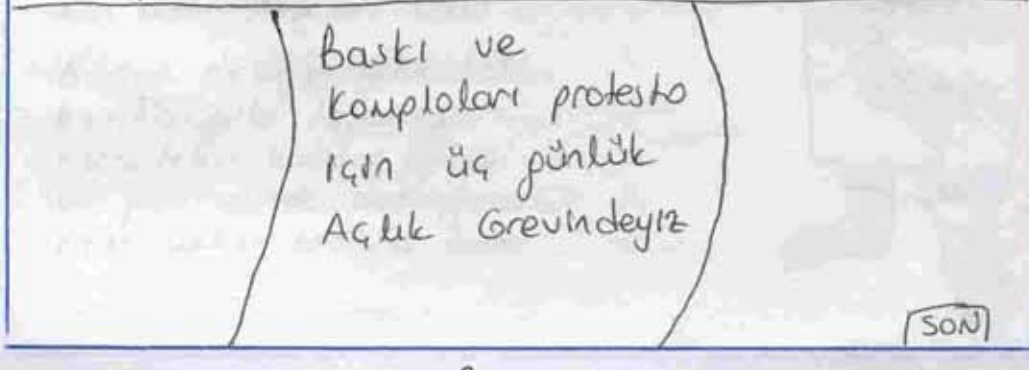 Baskı ve
Komploları protesto
için üç günlük
Açlık Grevindeyiz
SON